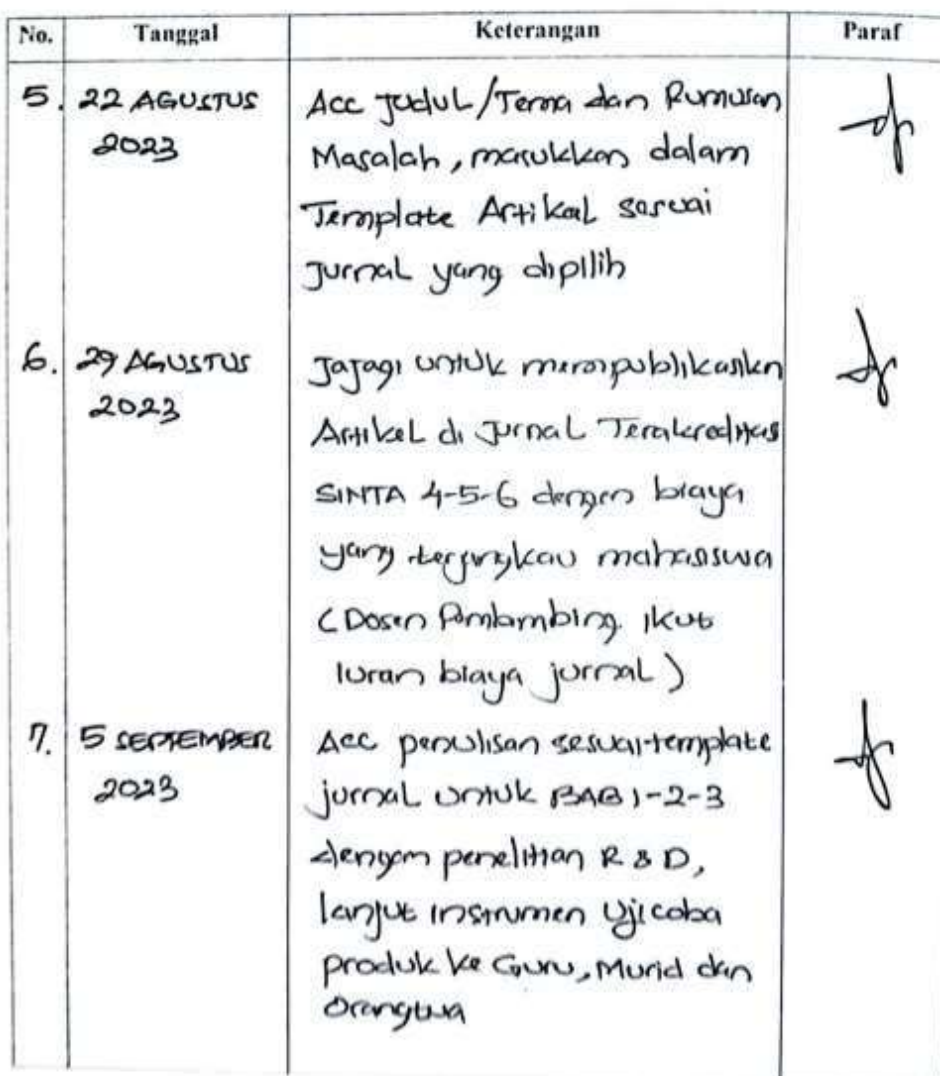 No. Tanggal Keterangan Paraf
5. 22 AGUSTUS Acc Judul/Tema dan Rumusan
2023 Masalah, masukkan dalam
Template Artikel sesuai
Jurnal yang dipilih
6. 29 AGUSTUS Jajagi untuk mempublikasikn
2023 Artikel di Jurnal Terakreditas
SINTA 4-5-6 dengan biaya
yang terjangkau mahasiswa
(Dosen Pembimbing ikut
Iuran biaya jurnal)
7. 5 SEPTEMBER Acc penulisan sesuai template
2023 jurnal untuk BAB 1-2-3
dengan penelitian R & D,
lanjut instrumen Ujicoba
produk ke Guru, Murid dan
Orangtua